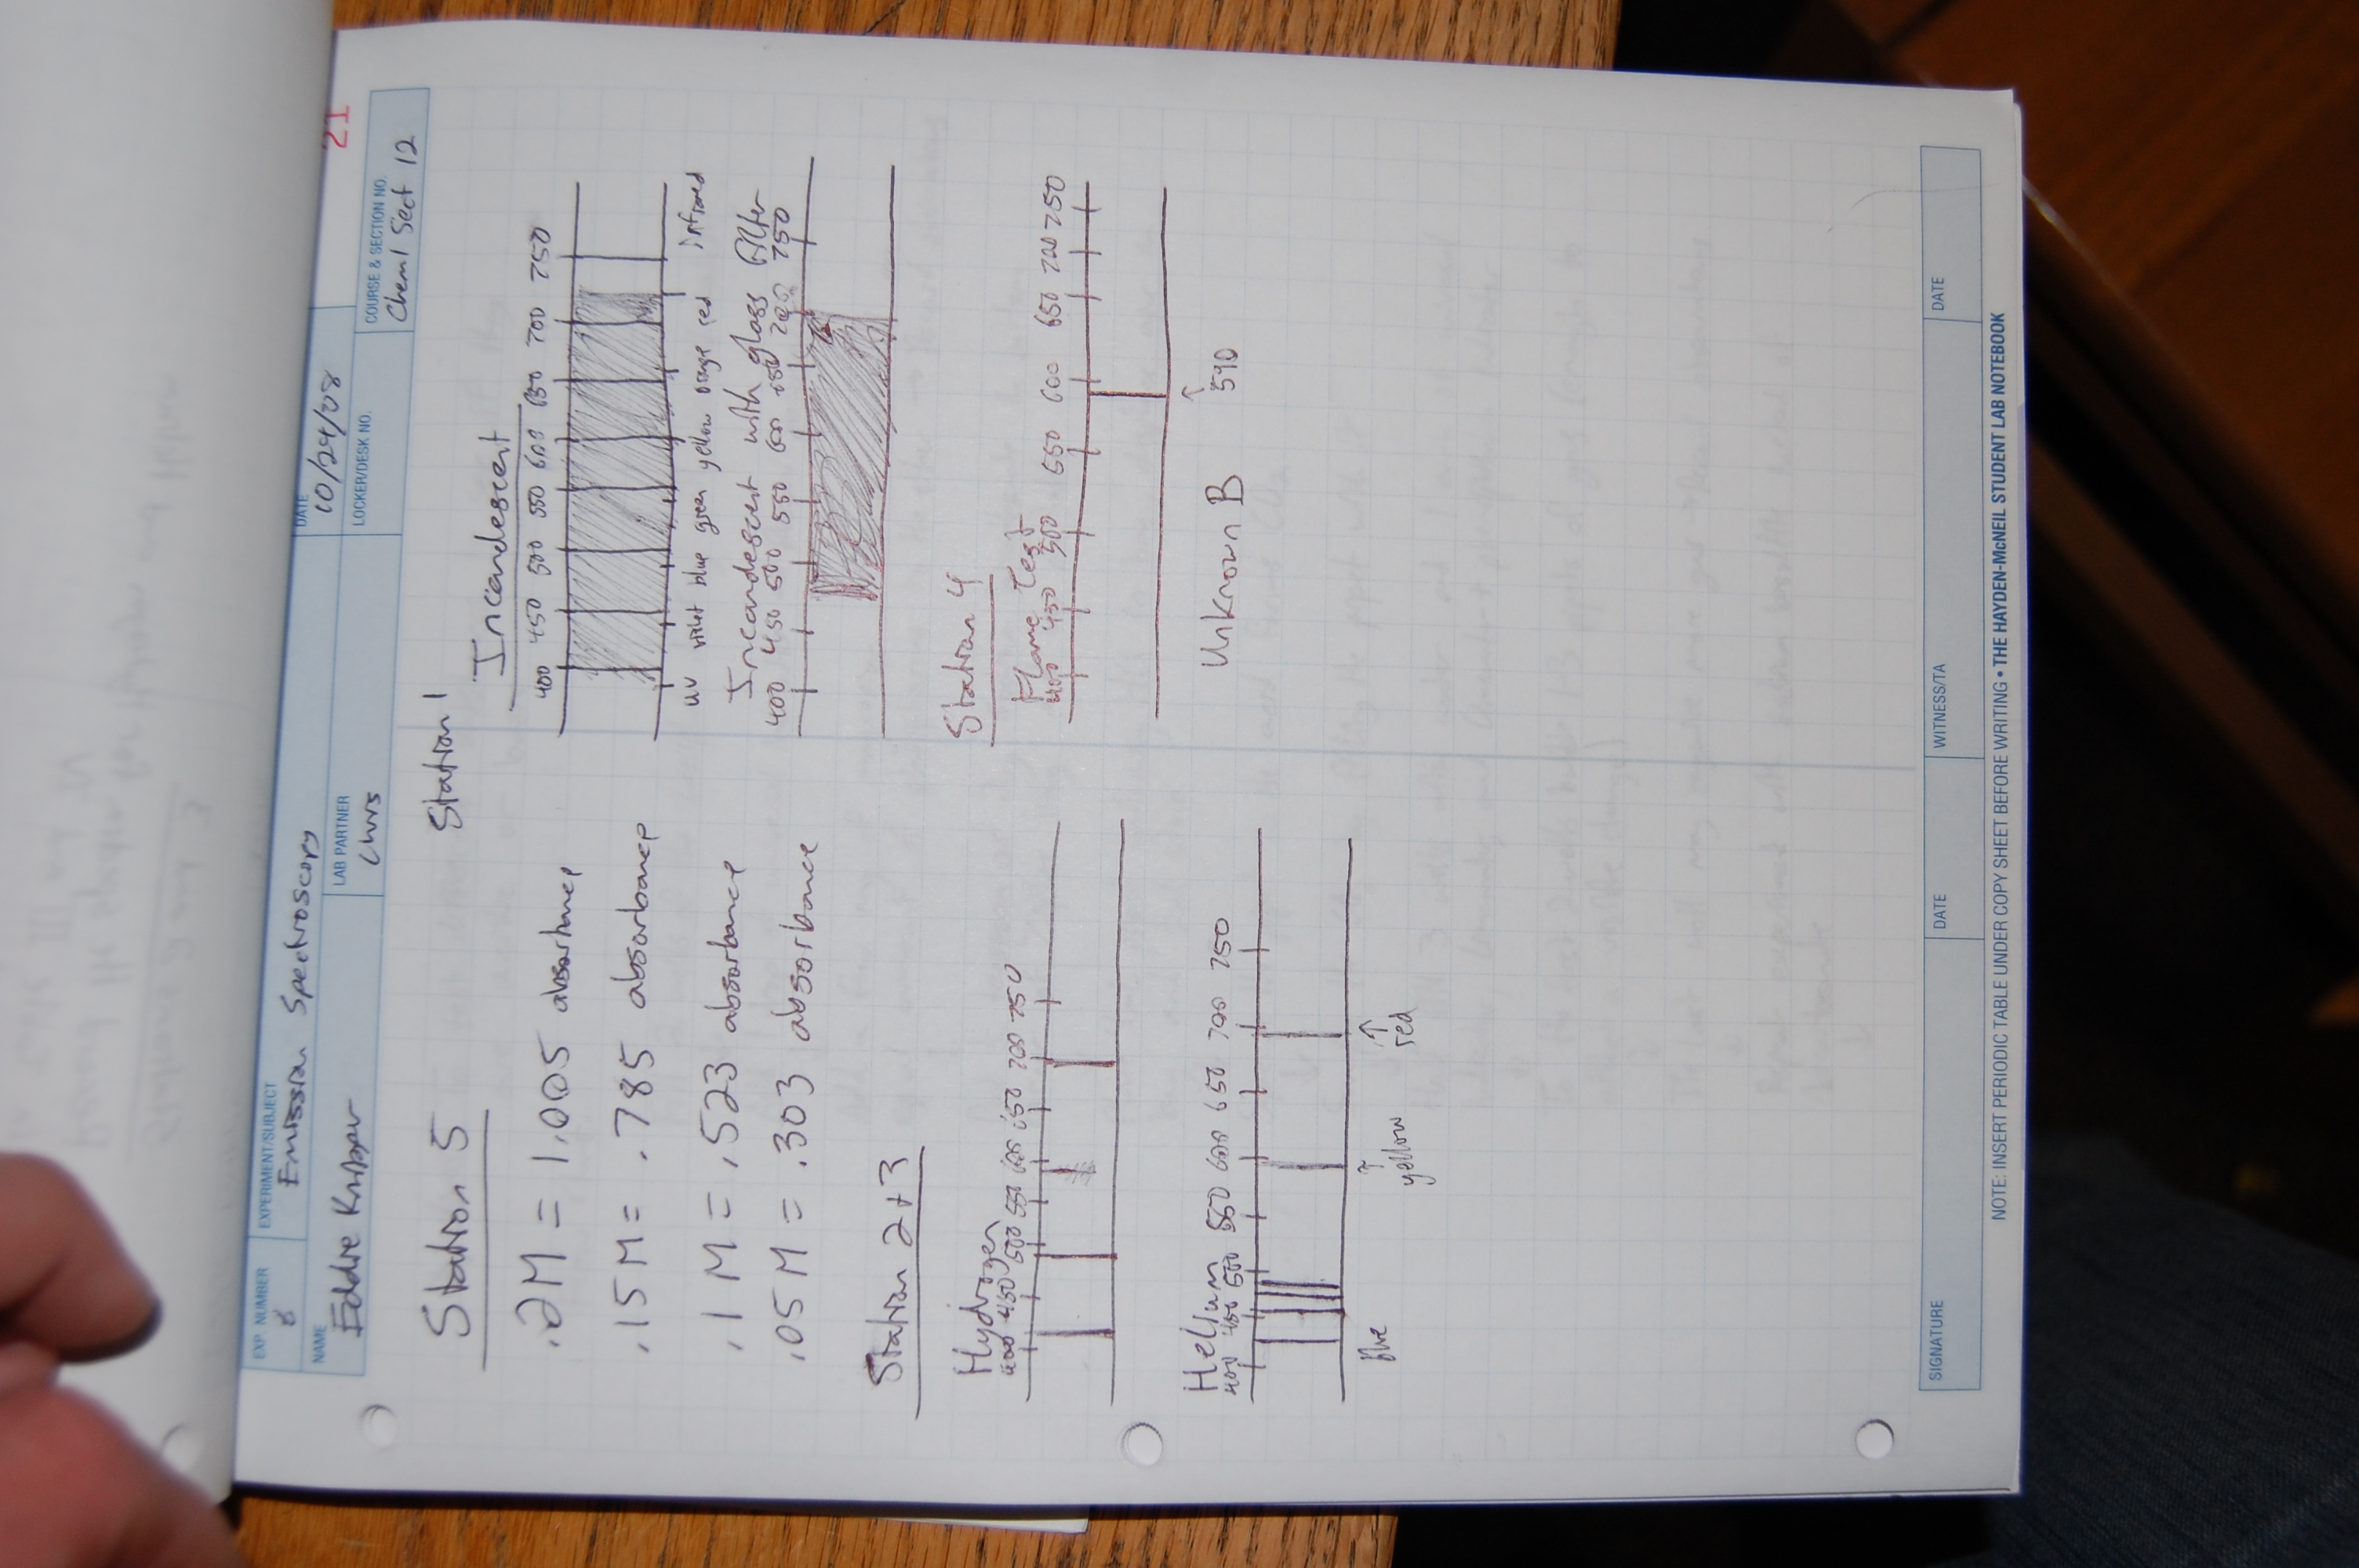 21
EXP. NUMBER
8
EXPERIMENT/SUBJECT
Emission Spectroscopy
DATE
10/24/08
NAME
Eddie
LAB PARTNER
Chris
LOCKER/DESK NO.
COURSE & SECTION NO.
Chem 1 Sect 12
Station 5
.2M = 1.005 absorbance
.15 M = .785 absorbance
.1 M = .523 absorbance
.05 M = .303 absorbance
Station 2+3
Hydrogen
400 450 500 550 600 650 700 750
Helium
400 450 500 550 600 650 700 750
blue
↑ yellow
↑ red
Station 1
Incandescent
400 450 500 550 600 650 700 750
uv violet blue green yellow orange red infrared
Incandescent with glass filter
400 450 500 550 600 650 700 750
Station 4
Flame Test
400 450 500 550 600 650 700 750
↑ 590
Unknown B
SIGNATURE
DATE
WITNESS/TA
DATE
NOTE: INSERT PERIODIC TABLE UNDER COPY SHEET BEFORE WRITING • THE HAYDEN-McNEIL STUDENT LAB NOTEBOOK